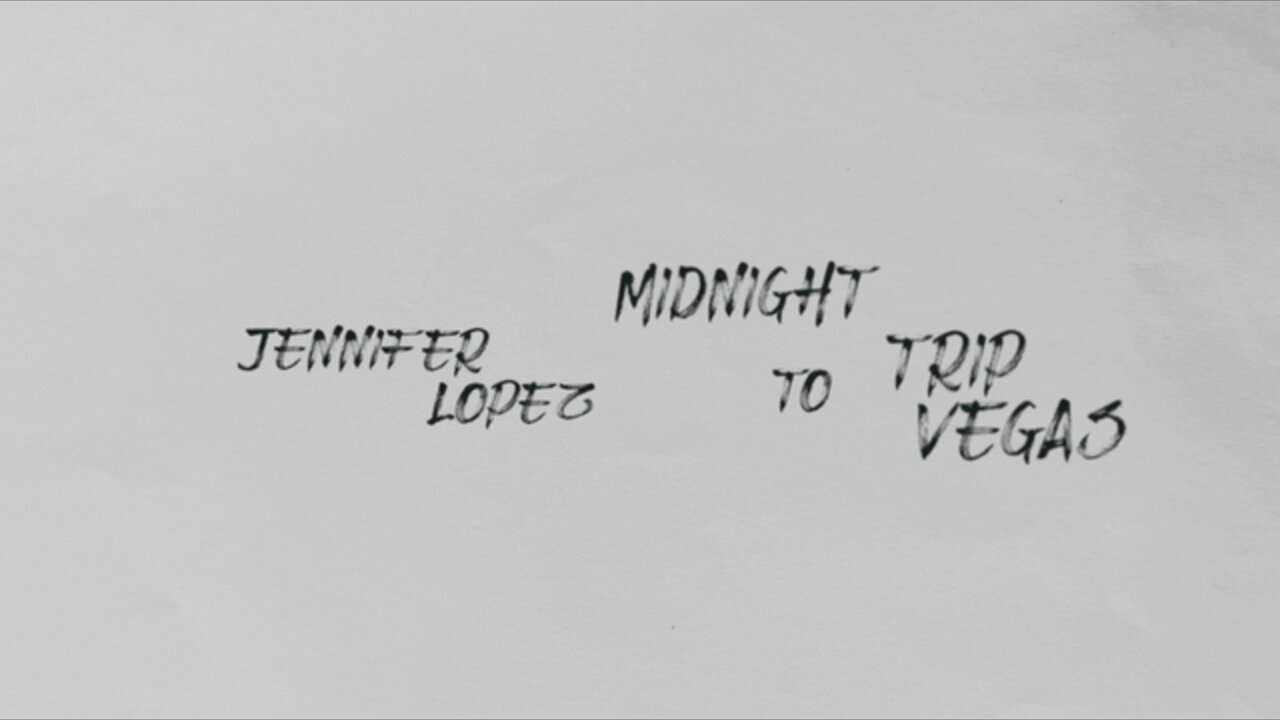 JENNIFER
LOPEZ
MIDNIGHT
TRIP
TO
VEGAS